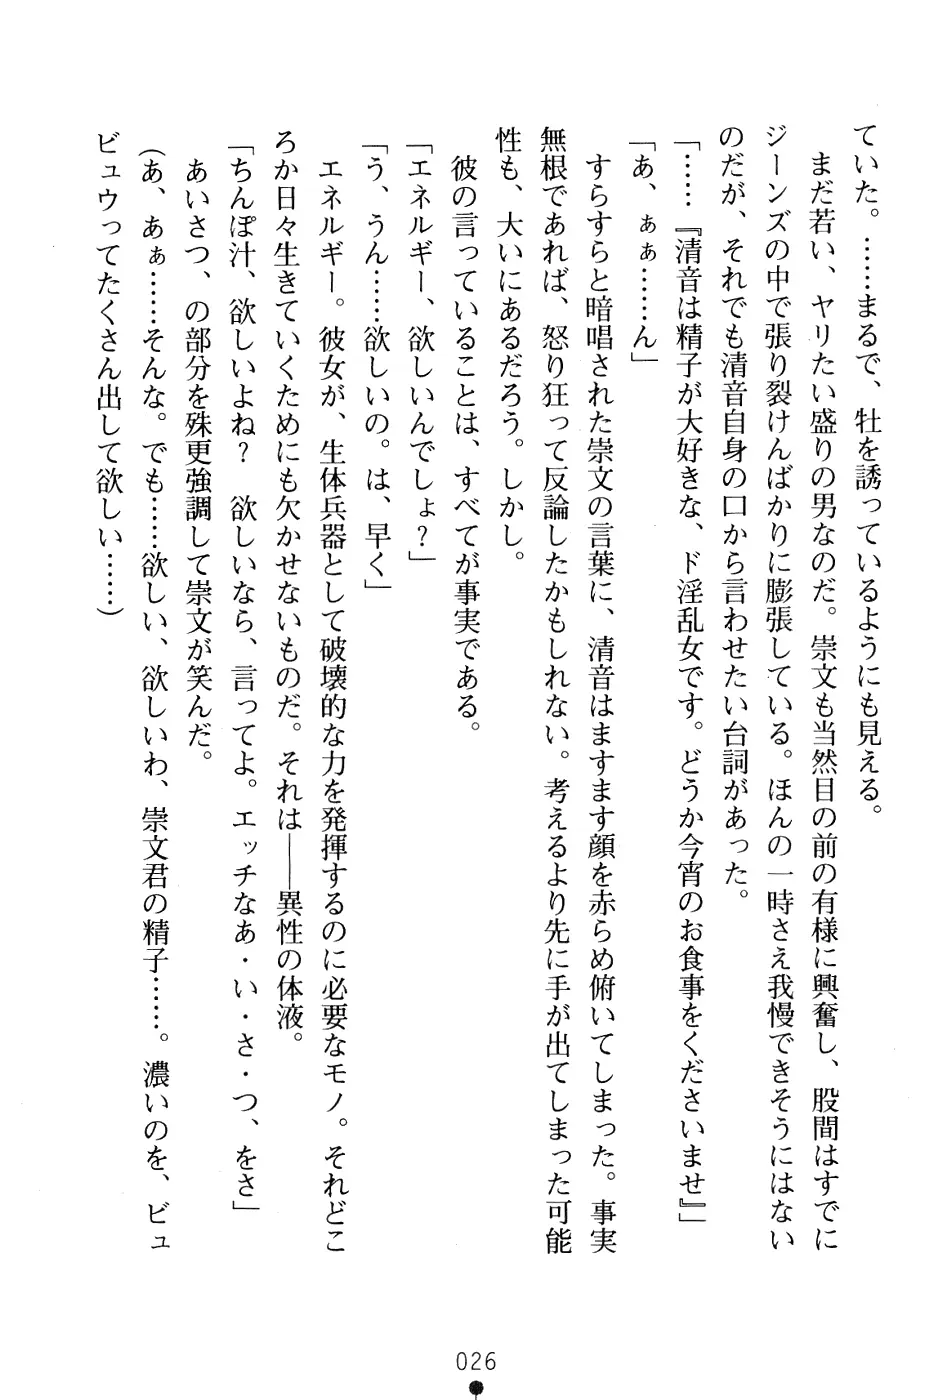 ていた。……まるで、牡を誘っているようにも見える。
まだ若い、ヤリたい盛りの男なのだ。崇文も当然目の前の有様に興奮し、股間はすでに
ジーンズの中で張り裂けんばかりに膨張している。ほんの一時さえ我慢できそうにはない
のだが、それでも清音自身の口から言わせたい台詞があった。
「……『清音は精子が大好きな、ド淫乱女です。どうか今宵のお食事をくださいませ』」
「あ、ぁぁ……ん」
すらすらと暗唱された崇文の言葉に、清音はますます顔を赤らめ俯いてしまった。事実
無根であれば、怒り狂って反論したかもしれない。考えるより先に手が出てしまった可能
性も、大いにあるだろう。しかし。
彼の言っていることは、すべてが事実である。
「エネルギー、欲しいんでしょ？」
「う、うん……欲しいの。は、早く」
エネルギー。彼女が、生体兵器として破壊的な力を発揮するのに必要なモノ。それどこ
ろか日々生きていくためにも欠かせないものだ。それは――異性の体液。
「ちんぽ汁、欲しいよね？　欲しいなら、言ってよ。エッチなあ・い・さ・つ、をさ」
あいさつ、の部分を殊更強調して崇文が笑んだ。
（あ、あぁ……そんな。でも……欲しい、欲しいわ、崇文君の精子……。濃いのを、ビュ
ビュウってたくさん出して欲しい……）
026